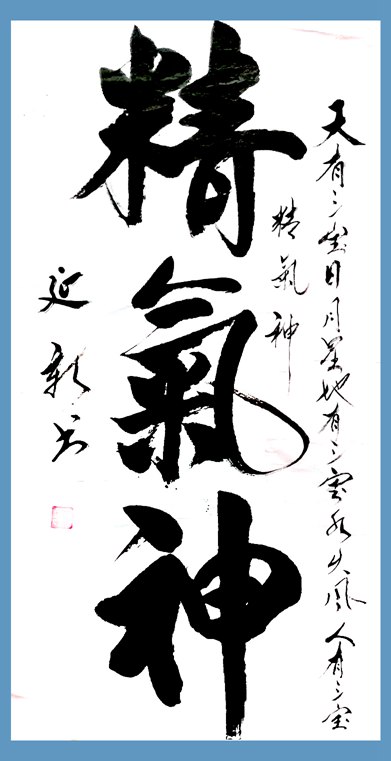 天有三宝日月星地有三宝水火风人有三宝
精氣神
精氣神
延新书